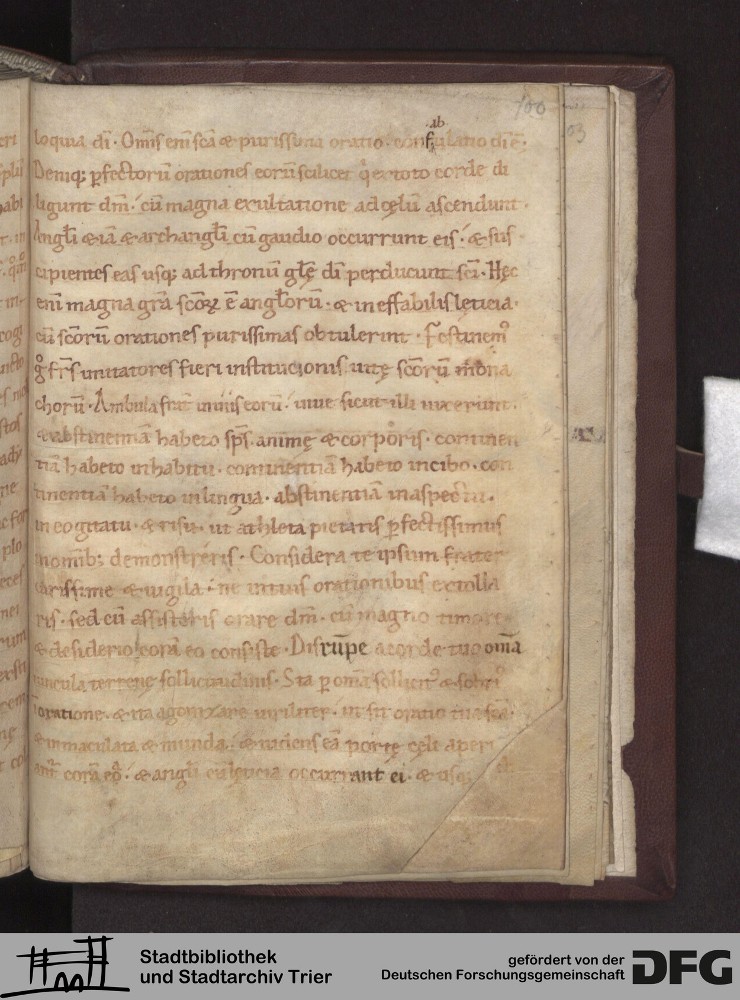 100
03
ab
loquia di͞. Om͞is eni͞ sc͞a & purissima oratio. confulatio di͞ ē.
Deniq; ꝑfectoru͞ orationes eoru͞ scilicet qͥ ex toto corde di
ligunt dm͞. cu͞ magna exultatione ad cęlu͞ ascendunt.
Angl͞i &ia͞ & archangl͞i cu͞ gaudio occurrunt eis. & sus
cipientes eas usq; ad thronu͞ gl͞ę di͞ perducunt sc͞i. Hęc
eni͞ magna gr͞a sc͞oꝝ ē angl͞oru͞. & ineffabilis lęticia.
cu͞ sc͞oru͞ orationes purissimas obtulerint. Festinemꝰ
gͦ fr͞s imitatores fieri institucionis uitę sc͞oru͞ mona
choru͞. Ambula frat͞ in uiis eoru͞. uiue sicut illi uixerunt.
& abstinentia͞ habeto sps͞. animę & corporis. continen
tia͞ habeto in habitu. continentia͞ habeto in cibo. con
tinentia͞ habeto in lingua. abstinentia͞ in aspectu.
in cogitatu. & risu. ut athleta pietatis ꝑfectissimus
in omib; demonstreris. Considera te ipsum frater
carissime & uigila. ne in tuis orationibus extolla
ris. sed cu͞ assisteris orare dm͞. cu͞ magno timore
& desiderio cora͞ eo consiste. Disru͞pe a corde tuo om͞a
uincula terrenę sollicitudinis. Sta ꝑ om͞a sollicitꝰ & sobriꝰ
i͞ oratione. & ita agonizare uiriliter. ut sit oratio tua sc͞a.
& immaculata & munda. & uidens ea͞ portę cęli aperi
ant͞ cora͞ eo͞. & angl͞i cu͞ lęticia occurrant ei. & usq;
Stadtbibliothek
und Stadtarchiv Trier
gefördert von der
Deutschen Forschungsgemeinschaft
DFG